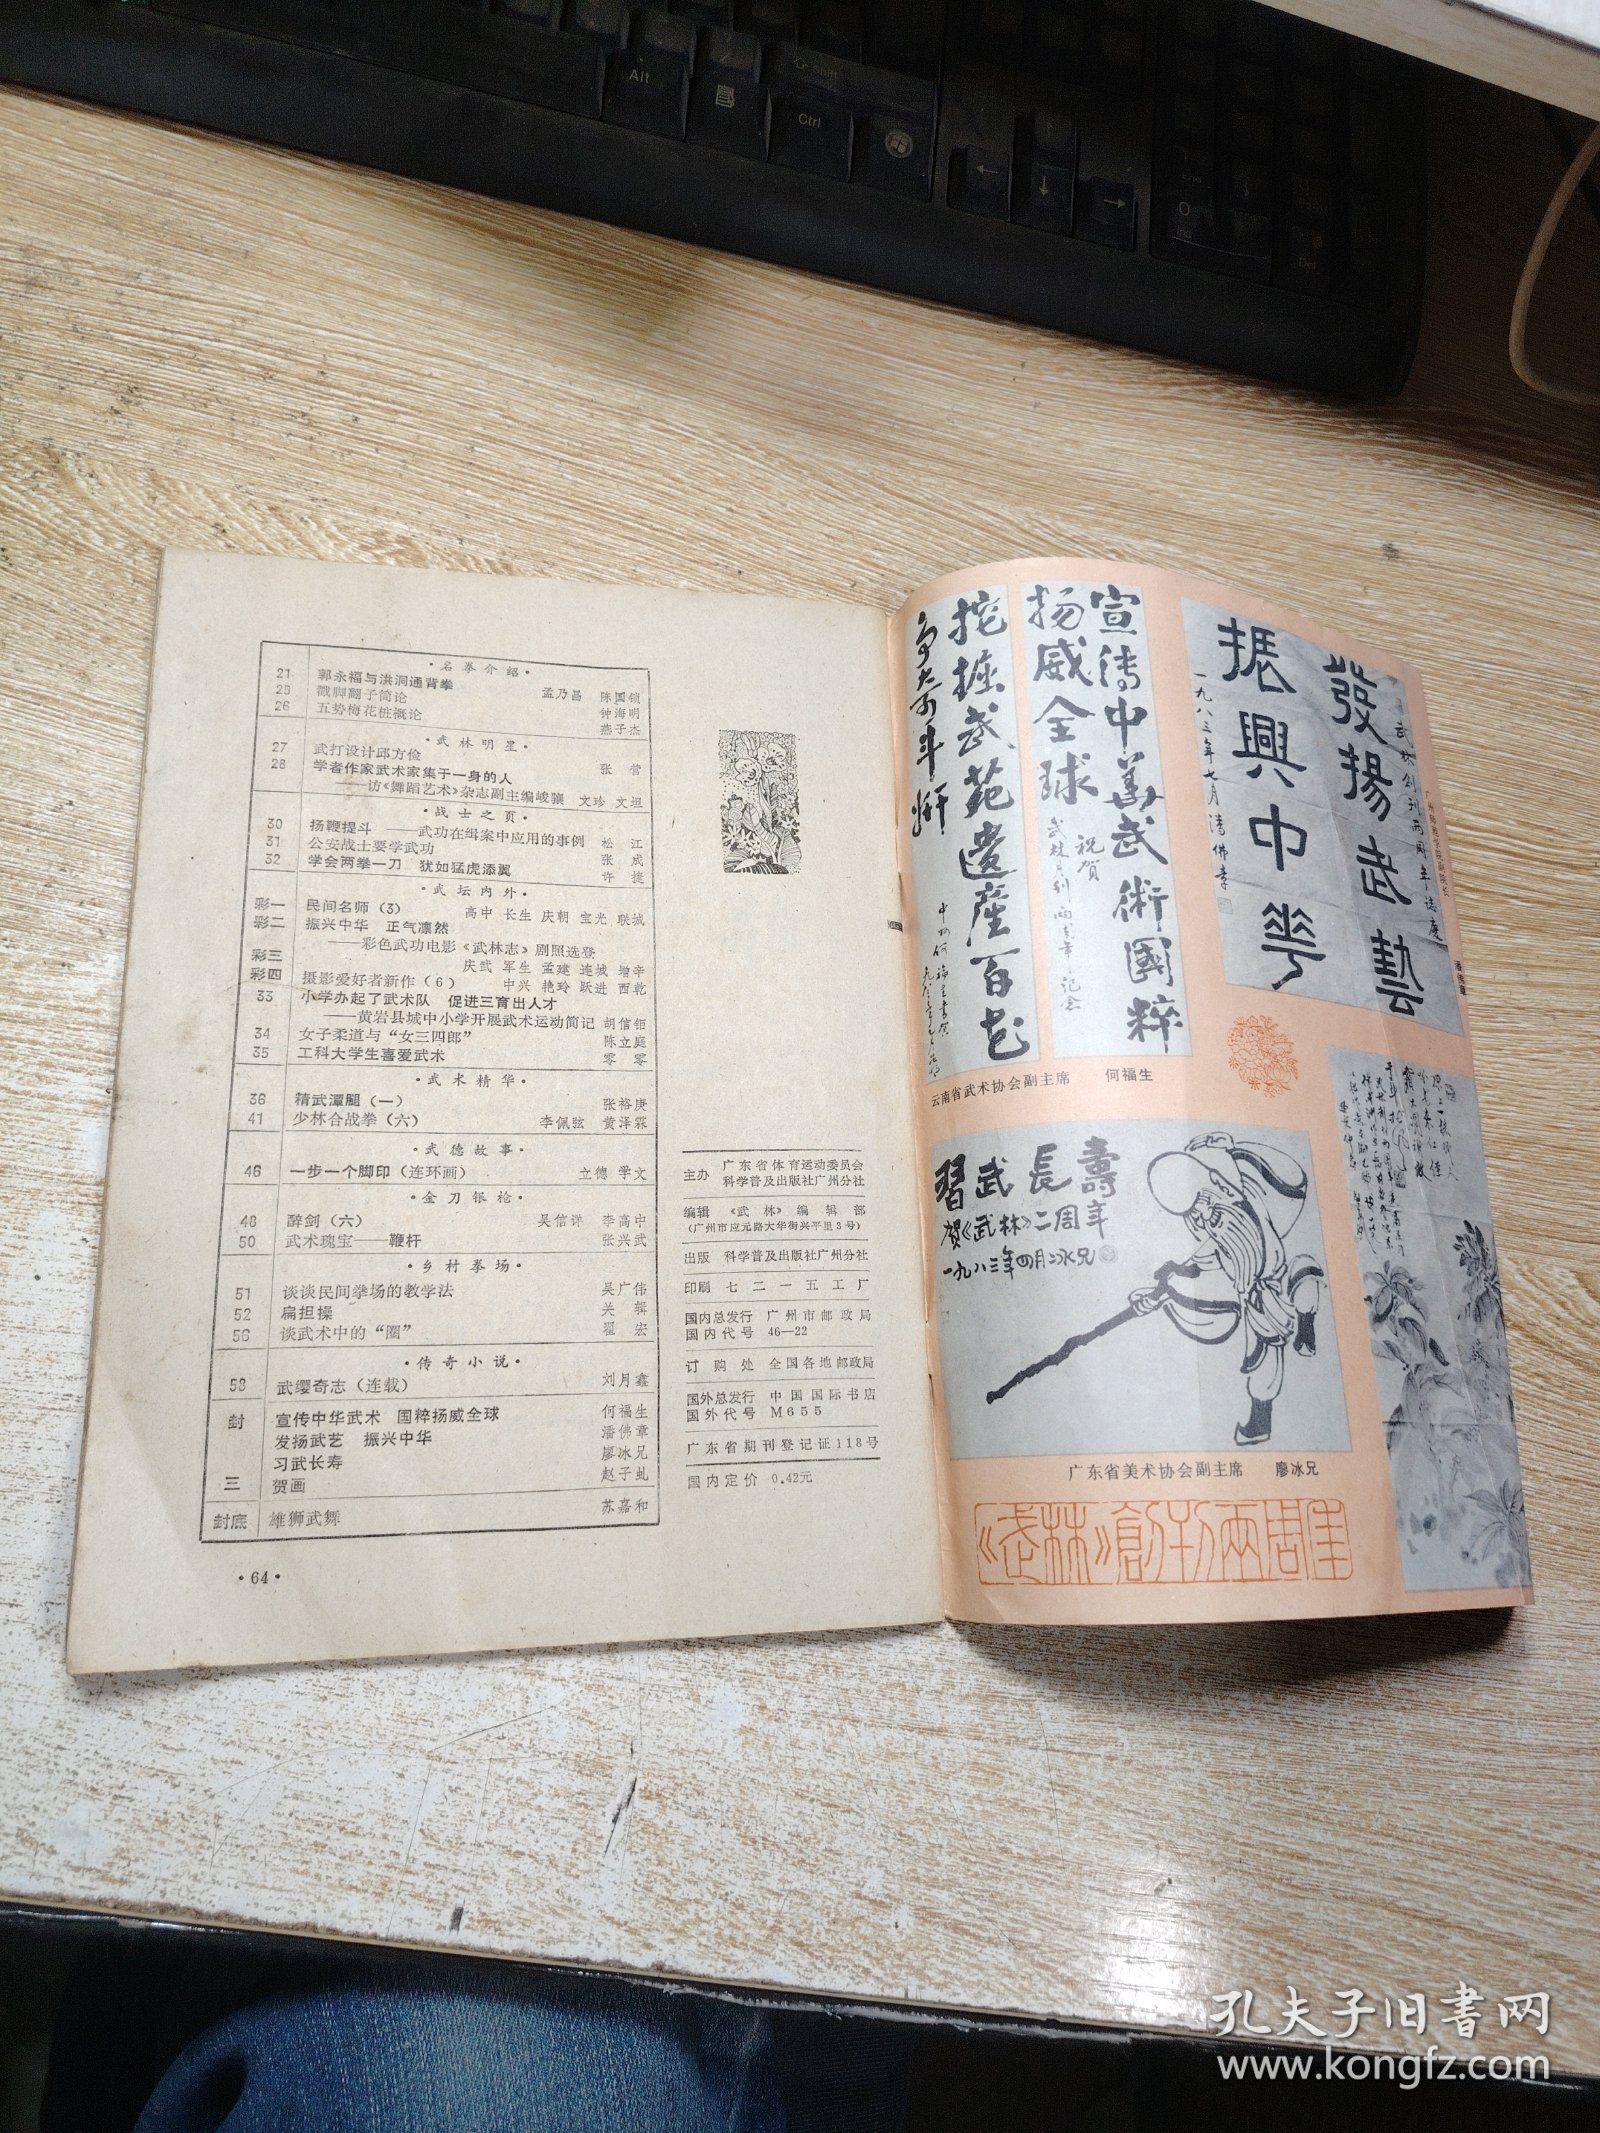 Alt
Ctrl
·名拳介绍·
21 郭永福与洪洞通背拳
孟乃昌 陈国锁
25 戳脚翻子简论 钟海明
26 五势梅花桩概论 燕子杰
·武林明星·
27 武打设计邱方俭 张营
28 学者作家武术家集于一身的人
——访《舞蹈艺术》杂志副主编峻骧 文珍 文坦
·战士之页·
30 扬鞭提斗——武功在缉案中应用的事例 松江
31 公安战士要学武功 张成
32 学会两拳一刀 犹如猛虎添翼 许捷
·武坛内外·
彩一 民间名师(3) 高中 长生 庆朝 宝光 联城
彩二 振兴中华 正气凛然
——彩色武功电影《武林志》剧照选登
彩三 庆武 军生 孟建 连城 增辛
彩四 摄影爱好者新作(6) 中兴 艳玲 跃进 西乾
33 小学办起了武术队 促进三育出人才
——黄岩县城中小学开展武术运动简记 胡信钜
34 女子柔道与“女三四郎” 陈立庭
35 工科大学生喜爱武术 零零
·武术精华·
36 精武潭腿(一) 张裕庚
41 少林合战拳(六) 李佩弦 黄泽霖
·武德故事·
46 一步一个脚印(连环画) 立德 学文
·金刀银枪·
48 醉剑(六) 吴信详 李高中
50 武术瑰宝——鞭杆 张兴武
·乡村拳场·
51 谈谈民间拳场的教学法 吴广伟
52 扁担操 关辑
56 谈武术中的“圈” 翟宏
·传奇小说·
58 武缨奇志(连载) 刘月鑫
封三
宣传中华武术 国粹扬威全球 何福生
发扬武艺 振兴中华 潘佛章
习武长寿 廖冰兄
贺画 赵子虬
封底 雄狮武舞 苏嘉和
·64·
主办 广东省体育运动委员会
科学普及出版社广州分社
编辑 《武林》编辑部
(广州市应元路大华街兴平里3号)
出版 科学普及出版社广州分社
印刷 七二一五工厂
国内总发行 广州市邮政局
国内代号 46—22
订购处 全国各地邮政局
国外总发行 中国国际书店
国外代号 M655
广东省期刊登记证118号
国内定价 0.42元
宣传中華武術國粹
扬威全球
祝賀
武林月刊两周年记念
挖掘武苑遺產百花
云南省武术协会副主席 何福生
發揚武藝
振興中華
武林创刊两周年志慶
一九八三年七月
習武長壽
賀《武林》二周年
一九八三年四月冰兄
广东省美术协会副主席 廖冰兄
《武林》創刊兩周年
孔夫子旧书网
www.kongfz.com